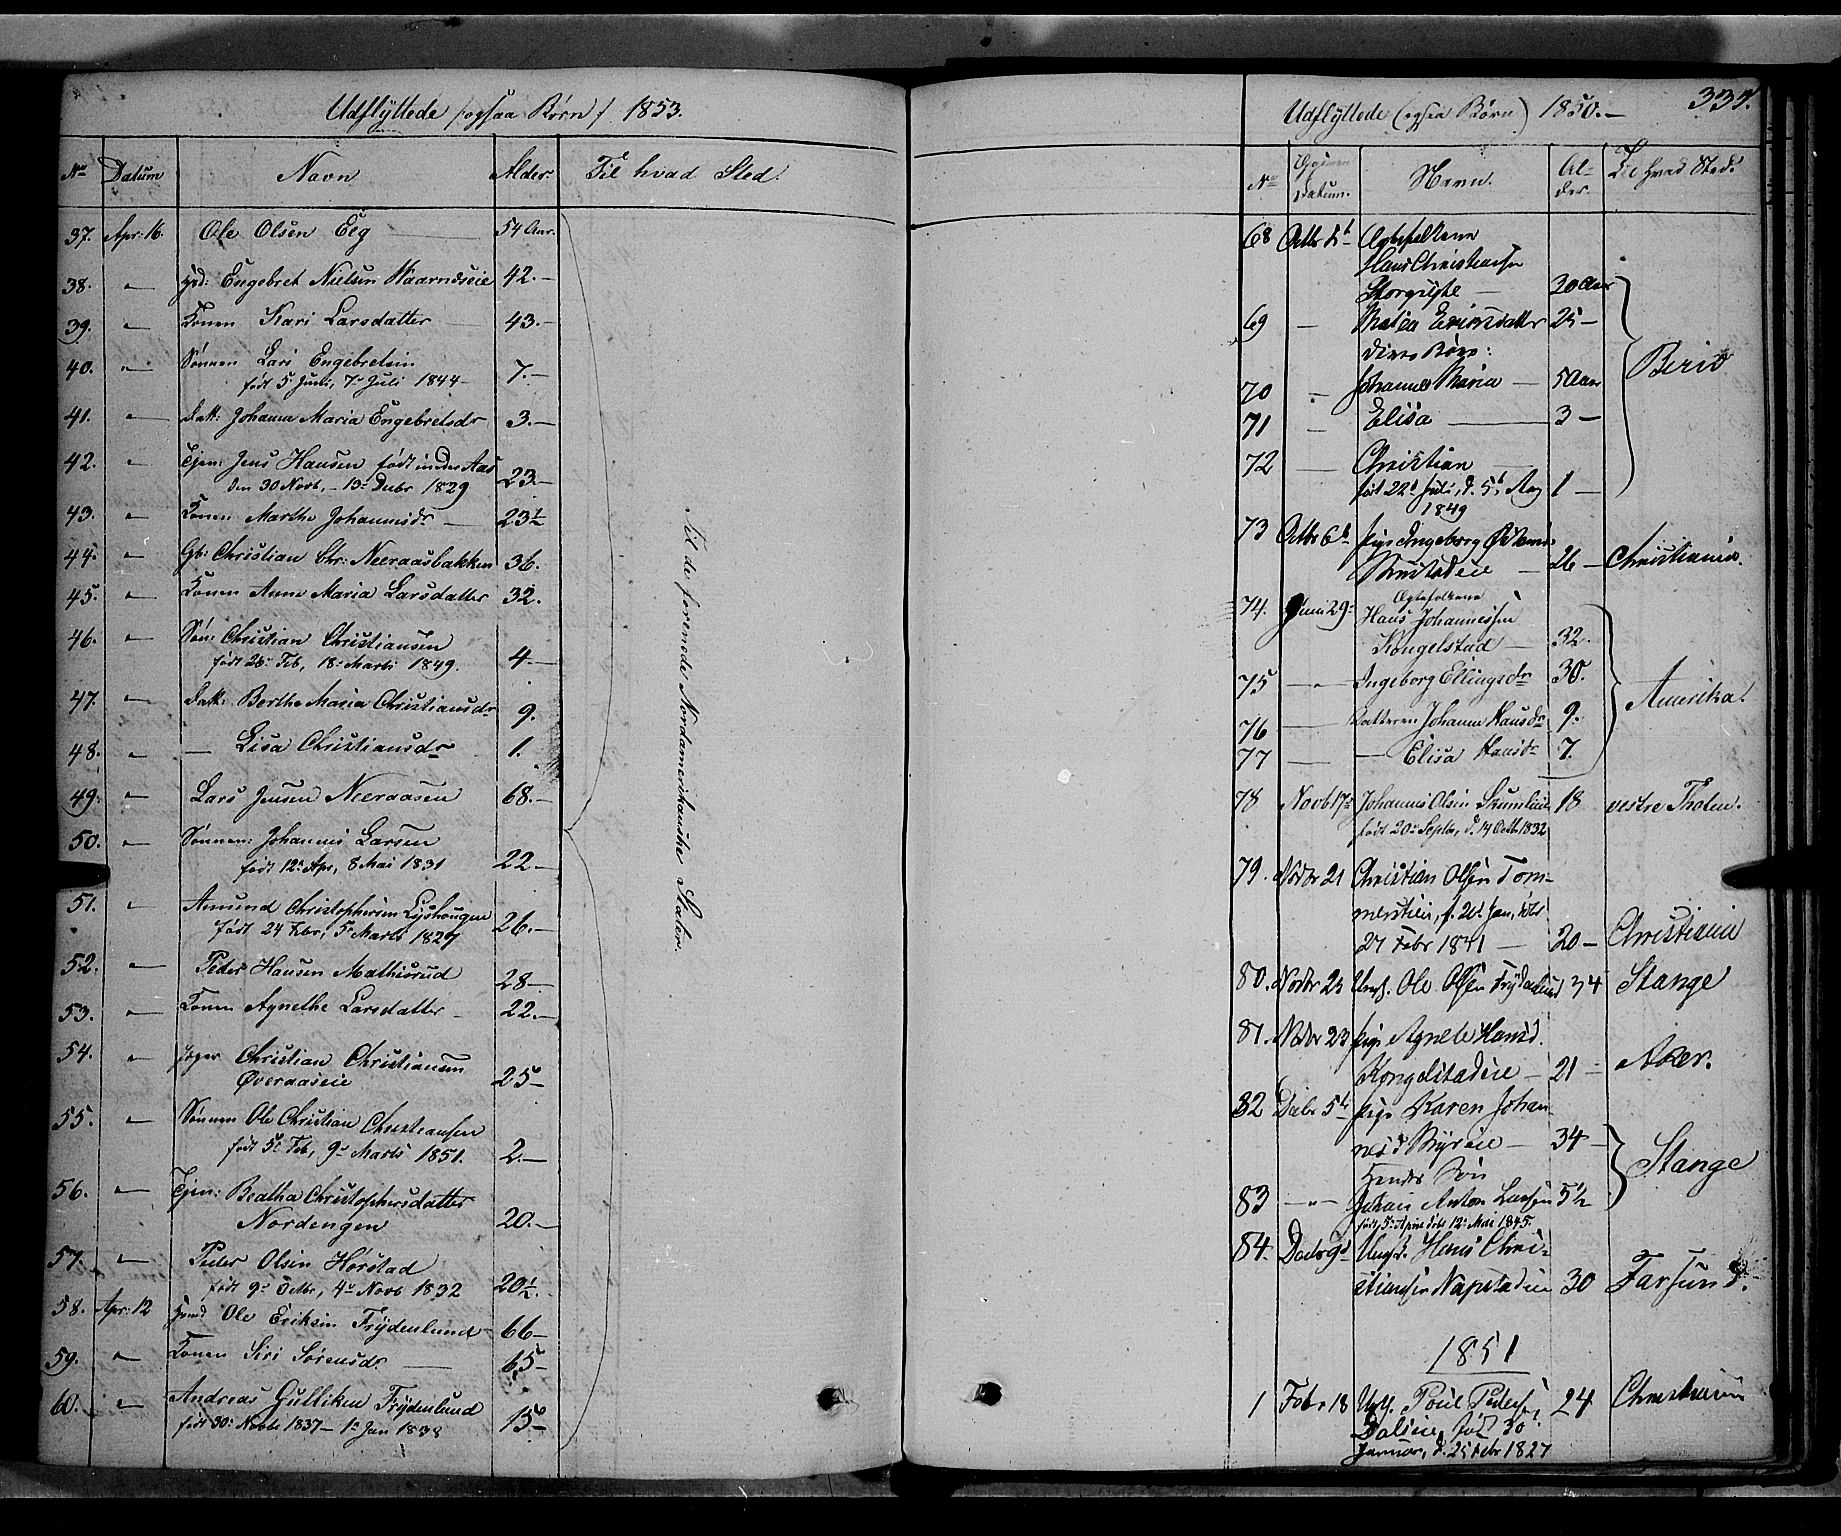 Udflyttede (ogsaa Børn) 1853.
No Datum Navn Alder Til hvad Sted.
37. Apr: 16. Ole Olsen Eeg 54 Aar.
38. " Hsd: Engebret Nielsen Waarndseie 42.–
39. " Konen Kari Larsdatter 43.–
40. " Sønnen Lars Engebretsen
født 5 Juni, 7de Juli 1844 7.–
41. " Datt: Johanna Maria Engebretsdr 3.–
42. " Tjen: Jens Hansen født under Aas
den 30 Novb, – 13de Decbr 1829 23–
43. " Konen Marthe Johannisdr 23½
44. " Gb: Christian Chr: Neeraasbakken 36.
45. " Konen Anne Maria Larsdatter 32.
46. " Søn: Christian Christiansen
født 28de Feb, 18de Marts 1849. 4–
47. " Datt: Berthe Maria Christiansdr 9.
48. " – Lisa Christiansdr 1.
49. " Lars Jensen Neeraasen 68.–
50. " Sønnen: Johannis Larsen
født 12te Apr, 8 Mai 1831 22–
51. " Amund Christophersen Lyshougen
født 24 Febr, 5te Marts 1827 26.–
52. " Peder Hansen Mathisrud 28–
53. " Konen Agnethe Larsdatter 22.–
54. " Christian Christiansen
Øveraaseie 25–
55. " Sønnen Ole Christian Christiansen
født 5te Feb, 9de Marts 1851. 2.–
56. " Tjen: Beatha Christophersdatter
Nordengen 20.–
57. " Peder Olsen Horstad
født 9de Octbr, 4de Novb 1832 20½
58. Apr: 12 Hsmd Ole Eriksen Frydenlund 66–
59. " Konen Siri Sørensdr 65–
60. " Andreas Gulliken Frydenlund
født 30te Novbr 1837 – 1ste Jan 1838 15–
Til de forenede Nordamerikanske Stater.
335.
Udflyttede (ogsaa Børn) 1850.–
No Datum. Navn. Alder. Til hvad Sted.
68 Octbr Ægtefolkene
Hans Christiansen
30 Aar
69 – Erichsdatter 25 –
deres Børn:
70 – Johanne Maria – 5 Aar
Berid
71 – Elisa 3 –
72 – Christian
født 22de Juli, d. 5te Aug 1 –
1849
73 Octbr 6te Pige Ingeborg
26 – Christiania.
74. Juni 29de Ægtefolkene
Hans Johannessen
Kongelstad – 32.
75 – Ingeborg Ellingsdr 30.
76 – Datteren Johanne Hansdr 9.
Amerika.
77 – – Elisa Hansdr 7.
78 Novb 17de Johannes Olsen 18 vestre Thoten.
født 20de Septbr, d. 14 Octb 1832
79. Novbr 21 Christian Olsen Tom-
merstueie, f. 20 Jan, døbt
27 Febr 1831 – 20– Christiania
80. Novbr 23 Ungk. Ole Olsen Frydenlund 34 Stange
81. Novbr 23 Pige Agnete Hansd.
Kongelstadeie – 21 – Aker.
82 Decbr 5te Pige Karen Johan-
nesd Byreie – 34–
Hendes Søn
83 – " – Johan Anton Larsen 5½
født 5te April døbt 12te Mai 1845.
Stange
84. Decbr 9de Ungk. Hans Chri-
stiansen Napstadeie 30 Farsund.
1851
1 Febr 18 Ungk. Poul Pedersen 24 Christiania
Dalseie, født 30
Januar, d. 25 Febr 1827